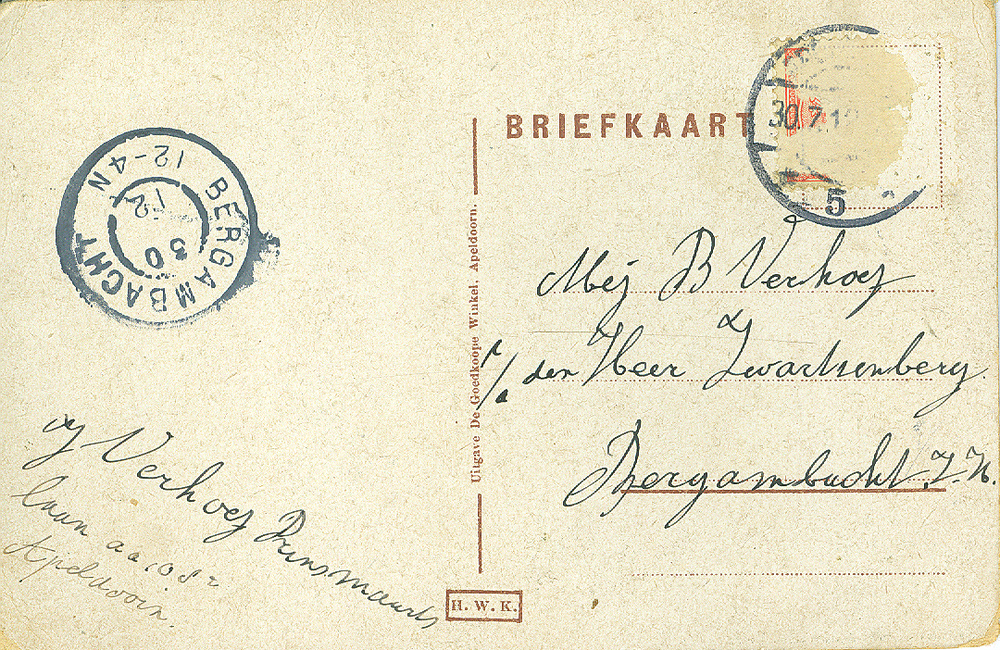 BRIEFKAART
30.7.1
5
BERGAMBACHT
12-4N
30
12
Mej B Verhoef
den Heer Zwartsenberg
Bergambacht. Z.H.
Uitgave De Goedkoope Winkel, Apeldoorn.
H. W. K.
Verhoef Prins Maurits
laan
Apeldoorn.